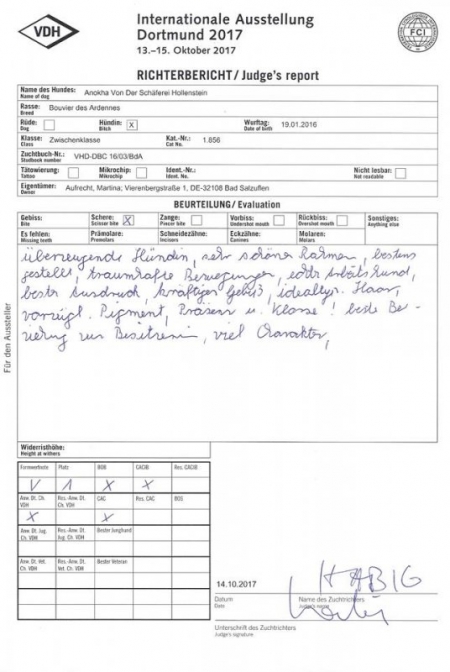 VDH
Internationale Ausstellung
Dortmund 2017
13.–15. Oktober 2017
FCI
RICHTERBERICHT / Judge's report
Name des Hundes: Anokha Von Der Schäferei Hollenstein
Name of dog
Rasse: Bouvier des Ardennes
Breed
Rüde: Hündin: X Wurftag: 19.01.2016
Dog Bitch Date of birth
Klasse: Zwischenklasse Kat.-Nr.: 1.856
Class Cat No.
Zuchtbuch-Nr.: VHD-DBC 16/03/BdA
Studbook number
Tätowierung: Mikrochip: Ident.-Nr.: Nicht lesbar:
Tattoo Microchip Ident. No. Not readable
Eigentümer: Aufrecht, Martina; Vierenbergstraße 1, DE-32108 Bad Salzuflen
Owner
BEURTEILUNG / Evaluation
Gebiss: Schere: X Zange: Vorbiss: Rückbiss: Sonstiges:
Bite Scissor bite Pincer bite Undershot mouth Overshot mouth Anything else
Es fehlen: Prämolare: Schneidezähne: Eckzähne: Molaren:
Missing teeth Premolars Incisors Canines Molars
überzeugende Hündin, sehr schöner Rahmen, bestens
gestellt, traumhafte Bewegungen, Arbeitshund,
bester Ausdruck, kräftiges Gebiß, Haar,
Pigment, Präsenz u. Klasse! beste Be-
ziehung zur Besitzerin, viel Charakter,
Für den Aussteller
Widerristhöhe:
Height at withers
Formwertnote Platz BOB CACIB Res. CACIB
V 1 X X
Anw. Dt. Ch. Res.-Anw. Dt. CAC Res. CAC BOS
VDH Ch. VDH
X X
Anw. Dt. Jug. Res.-Anw. Dt. Bester Junghund
Ch. VDH Jug. Ch. VDH
Anw. Dt. Vet. Res.-Anw. Dt. Bester Veteran
Ch. VDH Vet. Ch. VDH
14.10.2017 HABIG
Datum Name des Zuchtrichters
Date Judge's name
Unterschrift des Zuchtrichters
Judge's signature